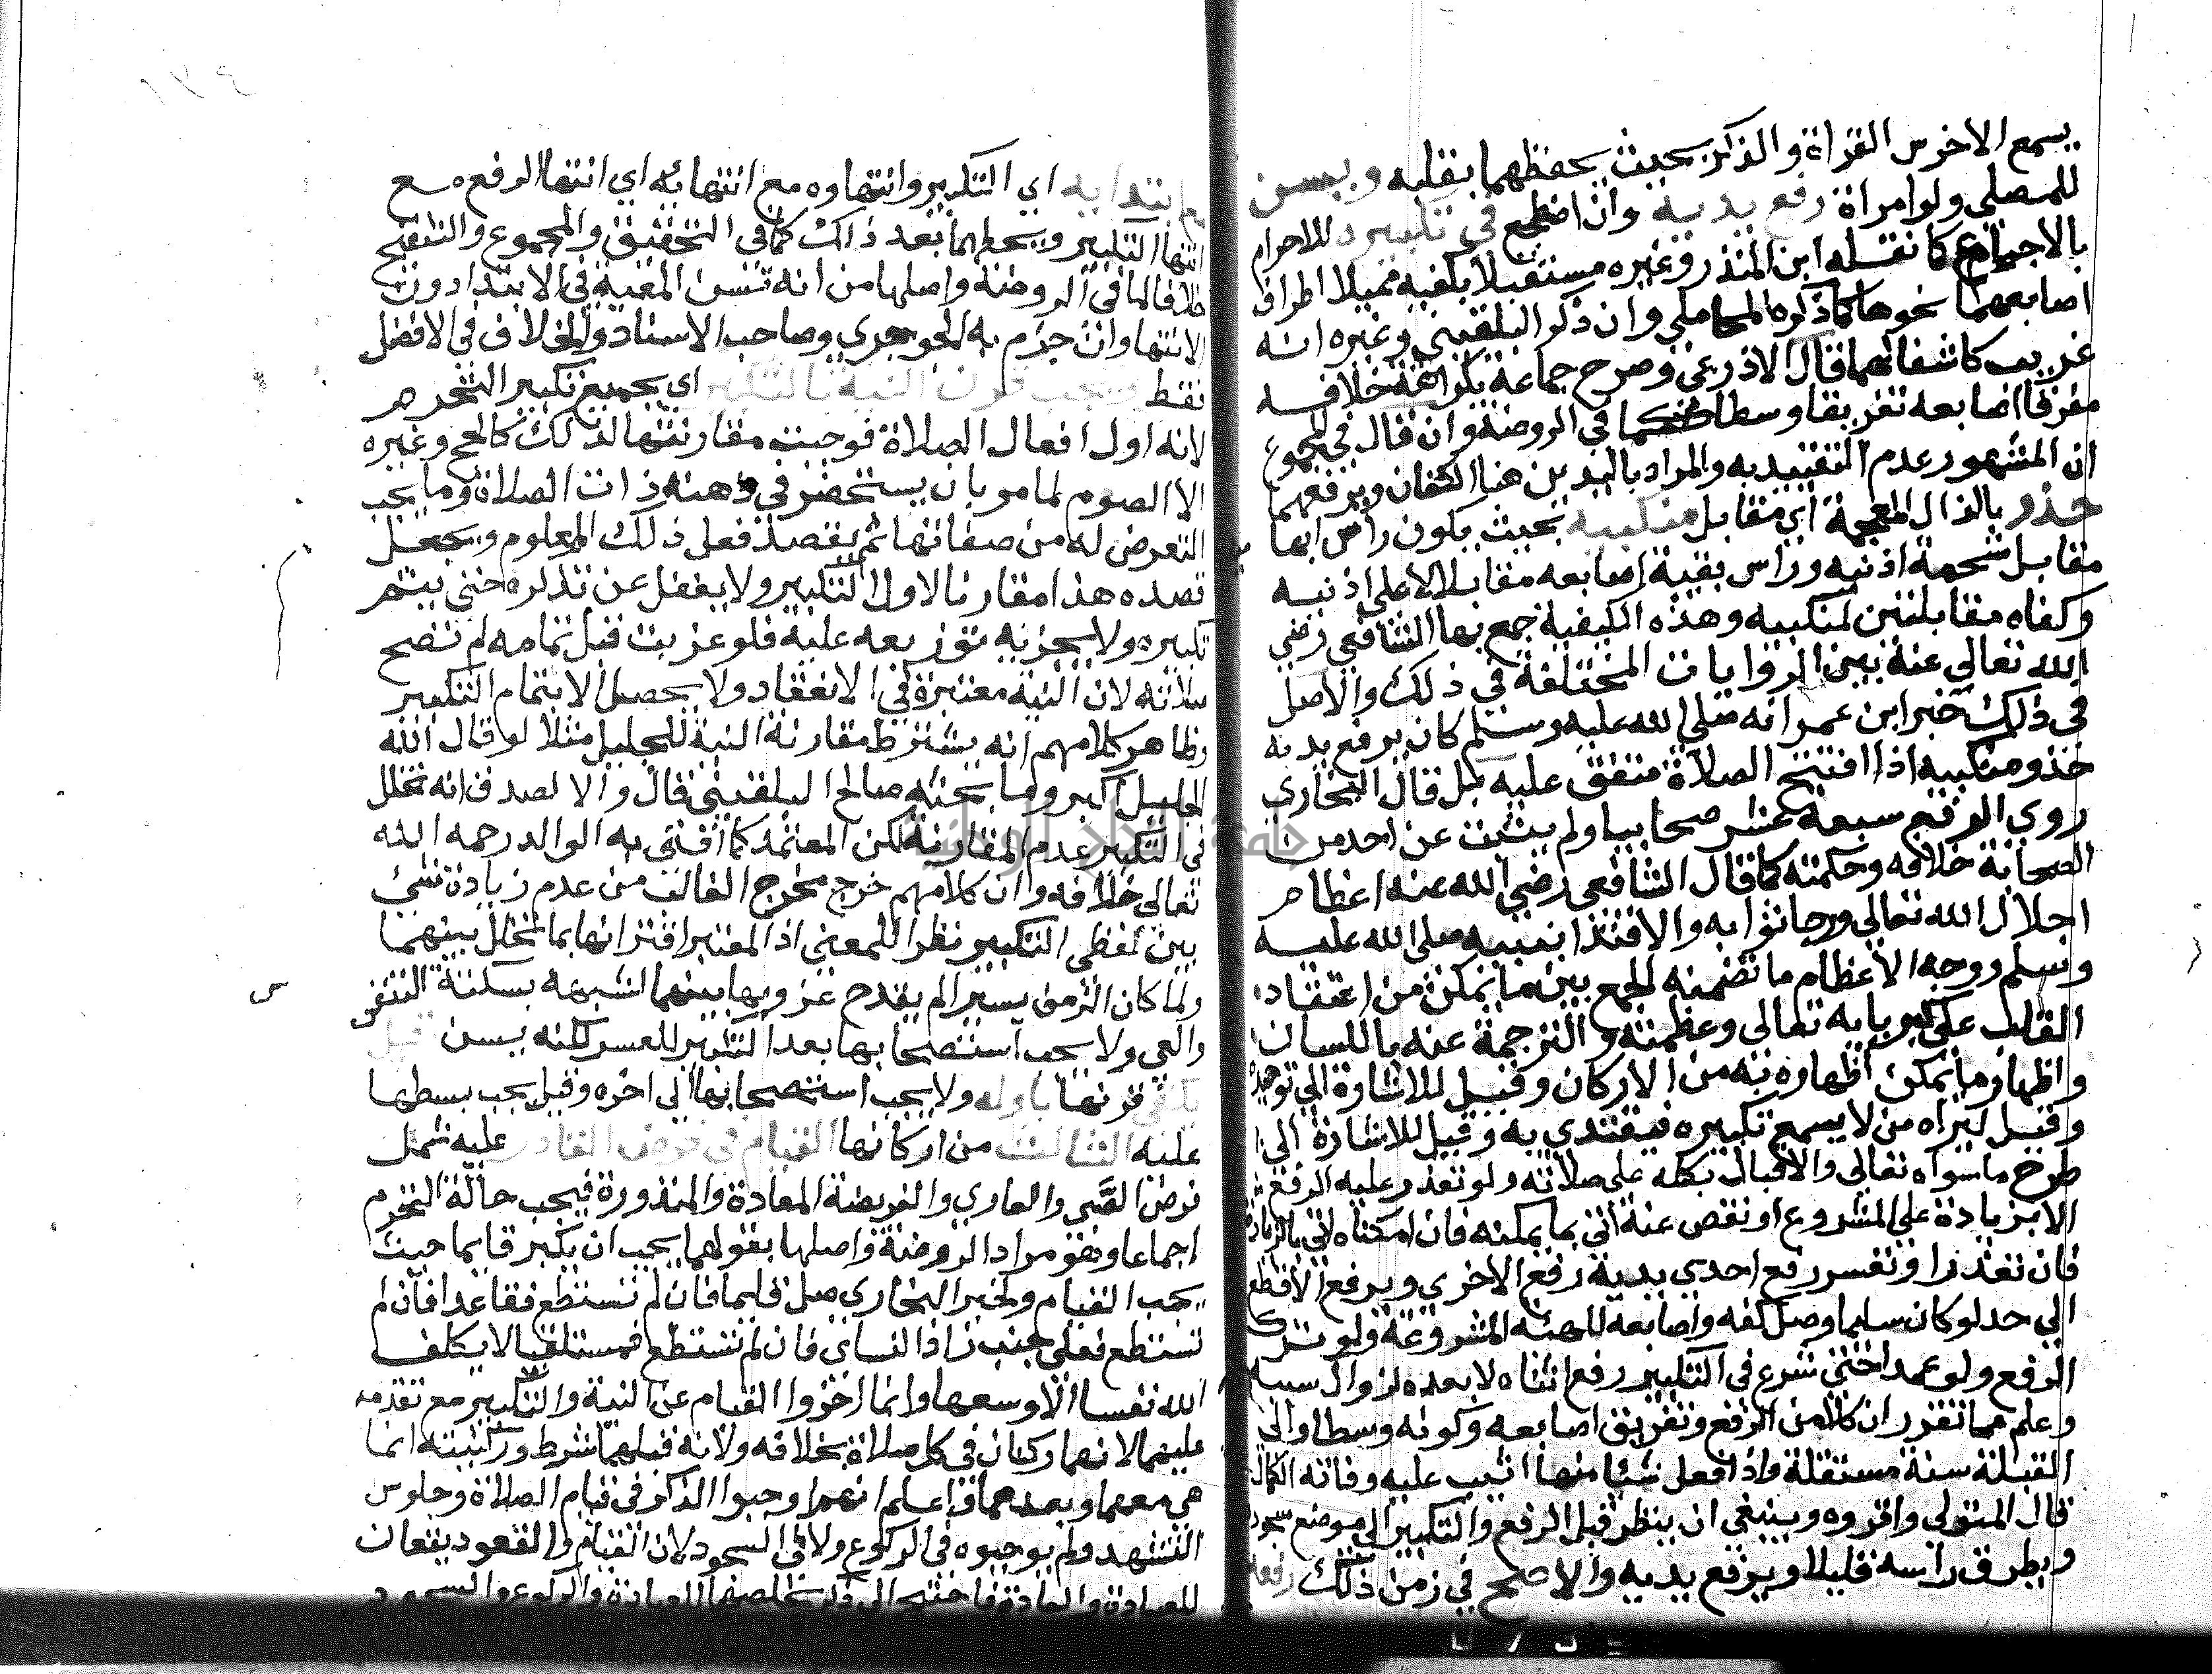 يسمع الاخرس القراة والذكر بحيث يحفظهما بقلبه ويسن
للمصلي ولو امراة رفع يديه وان اضطجع في تكبيره للاحرام
بالاجماع كما نقله ابن المنذر وغيره مستقبلا بكفيه مميلا اطراف
اصابعهما نحوها كما ذكره المحاملي وان ذكر البلقيني وغيره انه
غريب كاشفا لهما قال الاذرعي وصرح جماعة بكراهة خلافه
مفرقا اصابعه تفريقا وسطا كما في الروضة وان قال في المجموع
ان المشهور عدم التقييد به والمراد باليدين هنا الكفان ويرفعهما
حذو بالذال المعجمة اي مقابل منكبيه بحيث يكون راس ابها
مقابل شحمة اذنيه وراس بقية اصابعه مقابلا لاعلى اذنيه
وكفاه مقابلتين لمنكبيه وهذه الكيفية جمع بها الشافعي رضي
الله تعالى عنه بين الروايات المختلفة في ذلك والاصل
في ذلك خبر ابن عمر انه صلى الله عليه وسلم كان يرفع يديه
حذو منكبيه اذا افتتح الصلاة متفق عليه بل قال البخاري
روي الرفع سبعة عشر صحابيا ولم يثبت عن احد من
الصحابة خلافه وحكمته كما قال الشافعي رضي الله عنه اعظام
اجلال الله تعالى ورجا ثوابه والاقتدا بنبيه صلى الله عليه
وسلم ووجه الاعظام ما تضمنه الجمع بين ما يمكن من اعتقاد
القلب على كبريايه تعالى وعظمته والترجمة عنه باللسان
واظهار ما يمكن اظهاره به من الاركان وقيل للاشارة الى توحيده
وقيل ليراه من لا يسمع تكبيره فيقتدي به وقيل للاشارة الى
طرح ما سواه تعالى والاقبال بكله على صلاته ولو تعذر عليه الرفع
الا بزيادة على المشروع او نقص عنه اتى بما يمكنه فان امكناه اتى بالزيادة
فان تعذر او تعسر رفع احدي يديه رفع الاخرى ويرفع الاقطع
الى حد لو كان سليما وصل كفه واصابعه للهيئة المشروعة ولو ترك
الرفع ولو عمدا حتى شرع في التكبير رفع اثناه لا بعده لزوال سببه
وعلم مما تقرر ان كلا من الرفع وتفريق اصابعه وكونه وسطا والى
القبلة سنة مستقلة واذا فعل شيئا منها اثيب عليه وفاته الكمال
قال المتولي واقروه وينبغي ان ينظر قبل الرفع والتكبير الى موضع سجوده
ويطرق راسه قليلا ويرفع يديه والاصح في زمن ذلك رفعه
مع ابتدايه اي التكبير وانتهاوه مع انتهائه اي انتها الرفع مع
انتها التكبير ويحطهما بعد ذلك كما في التحقيق والمجموع والتنقيح
خلافا لما في الروضة واصلها من انه تسن المعية في الابتدا دون
الانتها وان جزم به الجوجري وصاحب الاسعاد والخلاف في الافضل
فقط ويجب قرن النية بالتكبير اي بجميع تكبير التحرم
لانه اول افعال الصلاة فوجبت مقارنتها لذلك كالحج وغيره
الا الصوم لما مر بان يستحضر في ذهنه ذات الصلاة وما يجب
التعرض له من صفاتها ثم يقصد فعل ذلك المعلوم ويجعل
قصده هذا مقارنا لاول التكبير ولا يغفل عن تذكره حتى يتم
تكبيره ولا يجزيه توزيعه عليه فلو عزبت قبل تمامه لم تصح
صلاته لان النية معتبرة في الانعقاد ولا يحصل الا بتمام التكبير
وظاهر كلامهم انه يشترط مقارنة النية للجليل مثلا لو قال الله
الجليل اكبر وما بحثه صالح البلقيني قال والا لصدق انه تخلل
في التكبير عدم المقارنة لكن المعتمد كما افتى به الوالد رحمه الله
تعالى خلافه وان كلامهم خرج مخرج الغالب من عدم زيادة شئ
بين لفظي التكبير نظرا للمعنى اذ المعتبر اقترانها بما تخلل بينهما
ولما كان الزمن يسيرا لم يقدح عزوبها بينهما لشبهه بسكتة التنفس
والعي ولا يجب استصحابها بعد التكبير للعسر لكنه يسن قيل
يكفي قرنها باوله ولا يجب استصحابها الى اخره وقيل يجب بسطها
عليه الثالث من اركانها القيام في فرض القادر عليه شمل
فرض الصبي والعاري والفريضة المعادة والمنذورة فيجب حالة التحرم
اجماعا وهو مراد الروضة واصلها بقولهما يجب ان يكبر قايما حيث
يجب القيام ولخبر البخاري صل قايما فان لم تستطع فقاعدا فان لم
تستطع فعلى جنب زاد النساي فان لم تستطع فمستلقيا لا يكلف
الله نفسا الا وسعها وانما اخروا القيام عن النية والتكبير مع تقدمه
عليهما لانهما ركنان في كل صلاة بخلافه ولانه قبلهما شرط وركنيته انما
هي معهما وبعدهما واعلم انهم اوجبوا الذكر في قيام الصلاة وجلوس
التشهد ولم يوجبوه في الركوع ولا في السجود لان القيام والقعود يقعان
للعبادة والعادة فاحتيج الى ذكر يخلصهما للعبادة والركوع والسجود
جامعة النجاح الوطنية